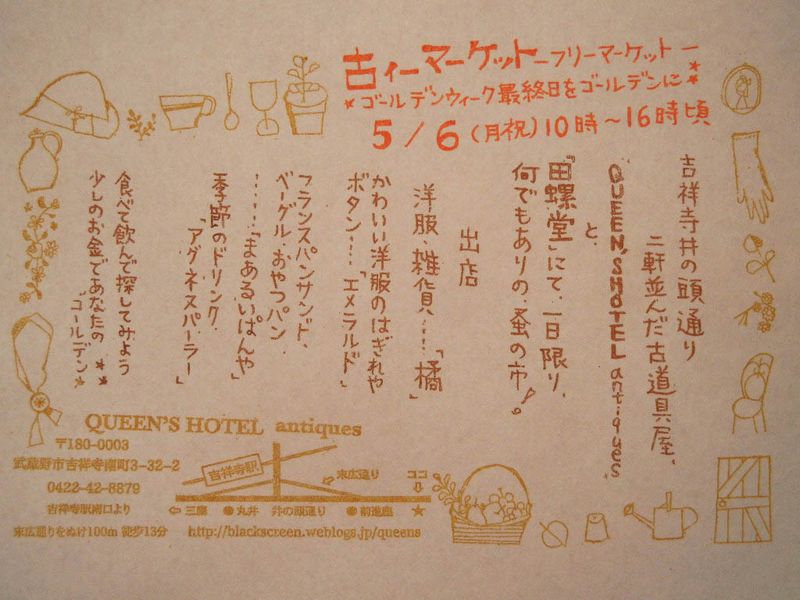 古ィーマーケット―フリーマーケット―
★ゴールデンウィーク最終日をゴールデンに★★
5/6(月祝)10時〜16時頃
吉祥寺井の頭通り
二軒並んだ古道具屋、
QUEEN'S HOTEL antiques
と
「田螺堂」にて、一日限り、
何でもありの、蚤の市!。
出店
洋服、雑貨……「橘」
かわいい洋服のはぎれや
ボタン……「エメラルド」
フランスパンサンド、
ベーグル、おやつパン
……「まあるいぱんや」
季節のドリンク
「アグネスパーラー」
食べて飲んで探してみよう
少しのお金であなたの
"ゴールデン"★★★
QUEEN'S HOTEL antiques
〒180-0003
武蔵野市吉祥寺南町3-32-2
0422-42-8879
吉祥寺駅南口より
末広通りをぬけ100m 徒歩13分
吉祥寺駅
⇦末広通り
ココ
⇩
⇦三鷹 ●丸井 井の頭通り ●前進座 ★
http://blackscreen.weblogs.jp/queens